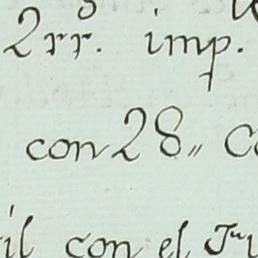 2rr. imp.
con 28,, C
il con el